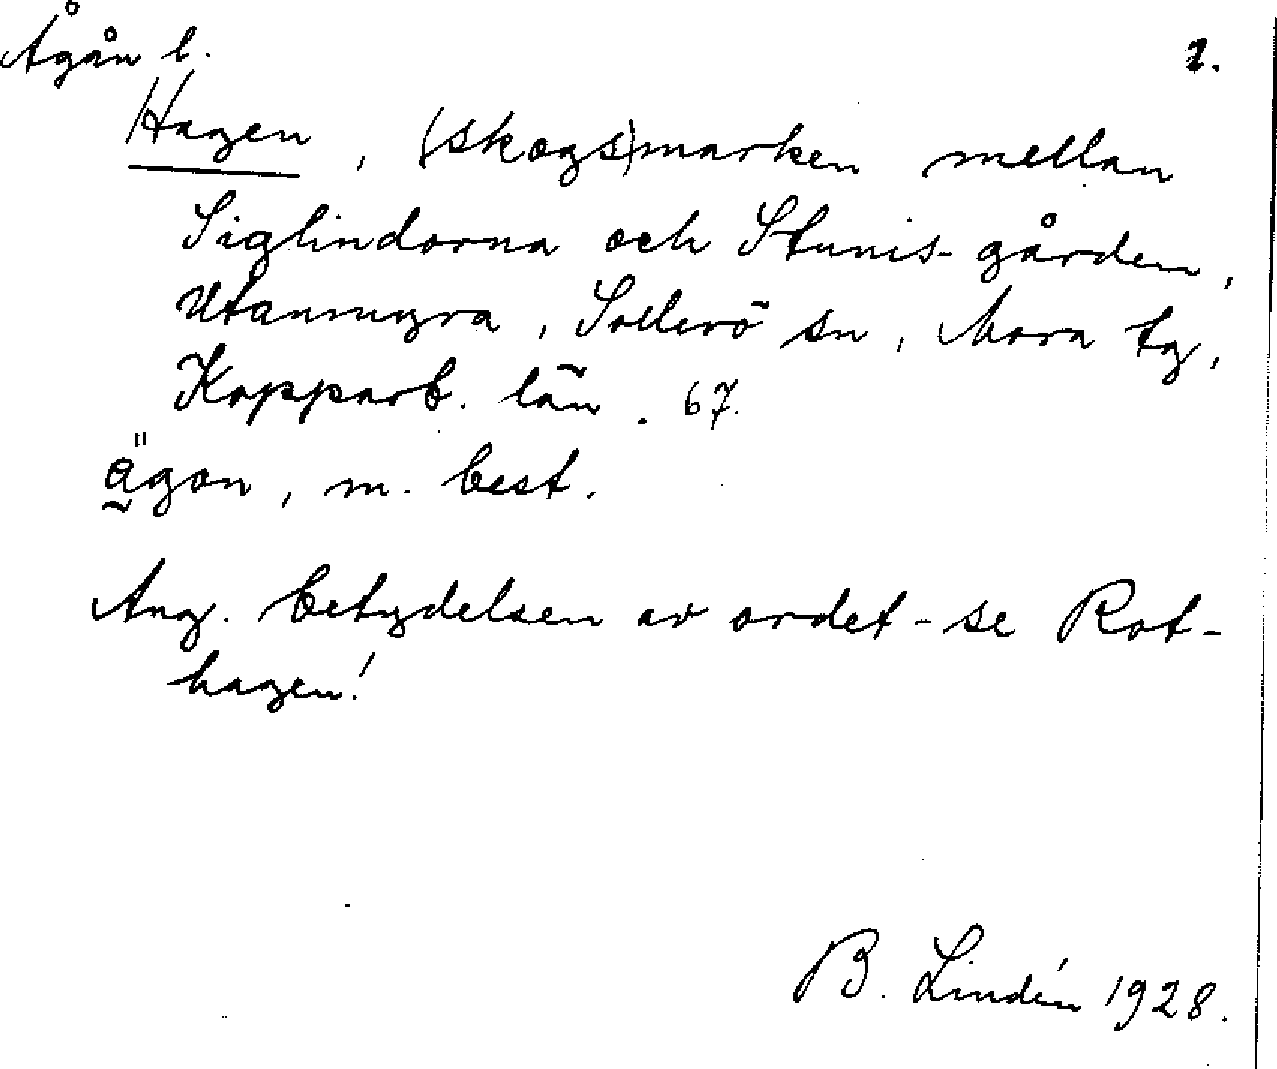 Ågån l. 2.
Hagen, (skogs)marken mellan
Siglindorna och Stunis-gården,
Utanmyra, Sollerö sn, Mora tg,
Kopparb. län. 67.
ägon, m. best.
Ang. betydelsen av ordet - se Rot-
hagen!
B. Lindén 1928.